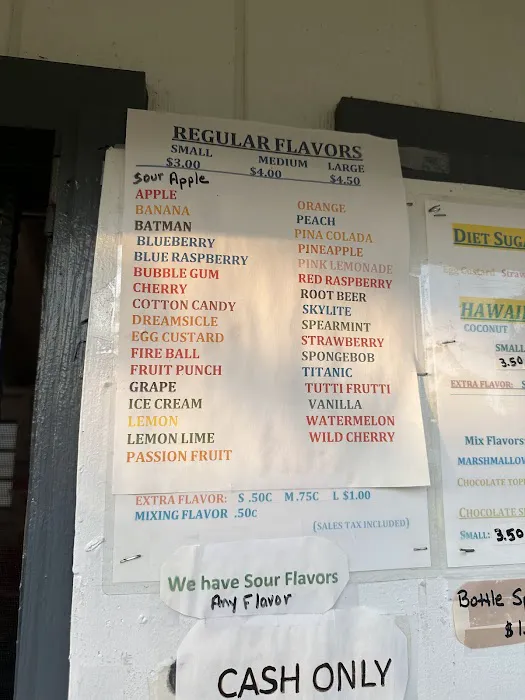 REGULAR FLAVORS
SMALL MEDIUM LARGE
$3.00 $4.00 $4.50
Sour Apple
APPLE
BANANA
BATMAN
BLUEBERRY
BLUE RASPBERRY
BUBBLE GUM
CHERRY
COTTON CANDY
DREAMSICLE
EGG CUSTARD
FIRE BALL
FRUIT PUNCH
GRAPE
ICE CREAM
LEMON
LEMON LIME
PASSION FRUIT
ORANGE
PEACH
PINA COLADA
PINEAPPLE
PINK LEMONADE
RED RASPBERRY
ROOT BEER
SKYLITE
SPEARMINT
STRAWBERRY
SPONGEBOB
TITANIC
TUTTI FRUTTI
VANILLA
WATERMELON
WILD CHERRY
EXTRA FLAVOR: S .50C M.75C L $1.00
MIXING FLAVOR .50c
(SALES TAX INCLUDED)
We have Sour Flavors
Any Flavor
CASH ONLY
DIET
COCONUT
SMALL
3.50
EXTRA FLAVOR:
Mix Flavors
CHOCOLATE
CHOCOLATE
SMALL: 3.50
Bottle